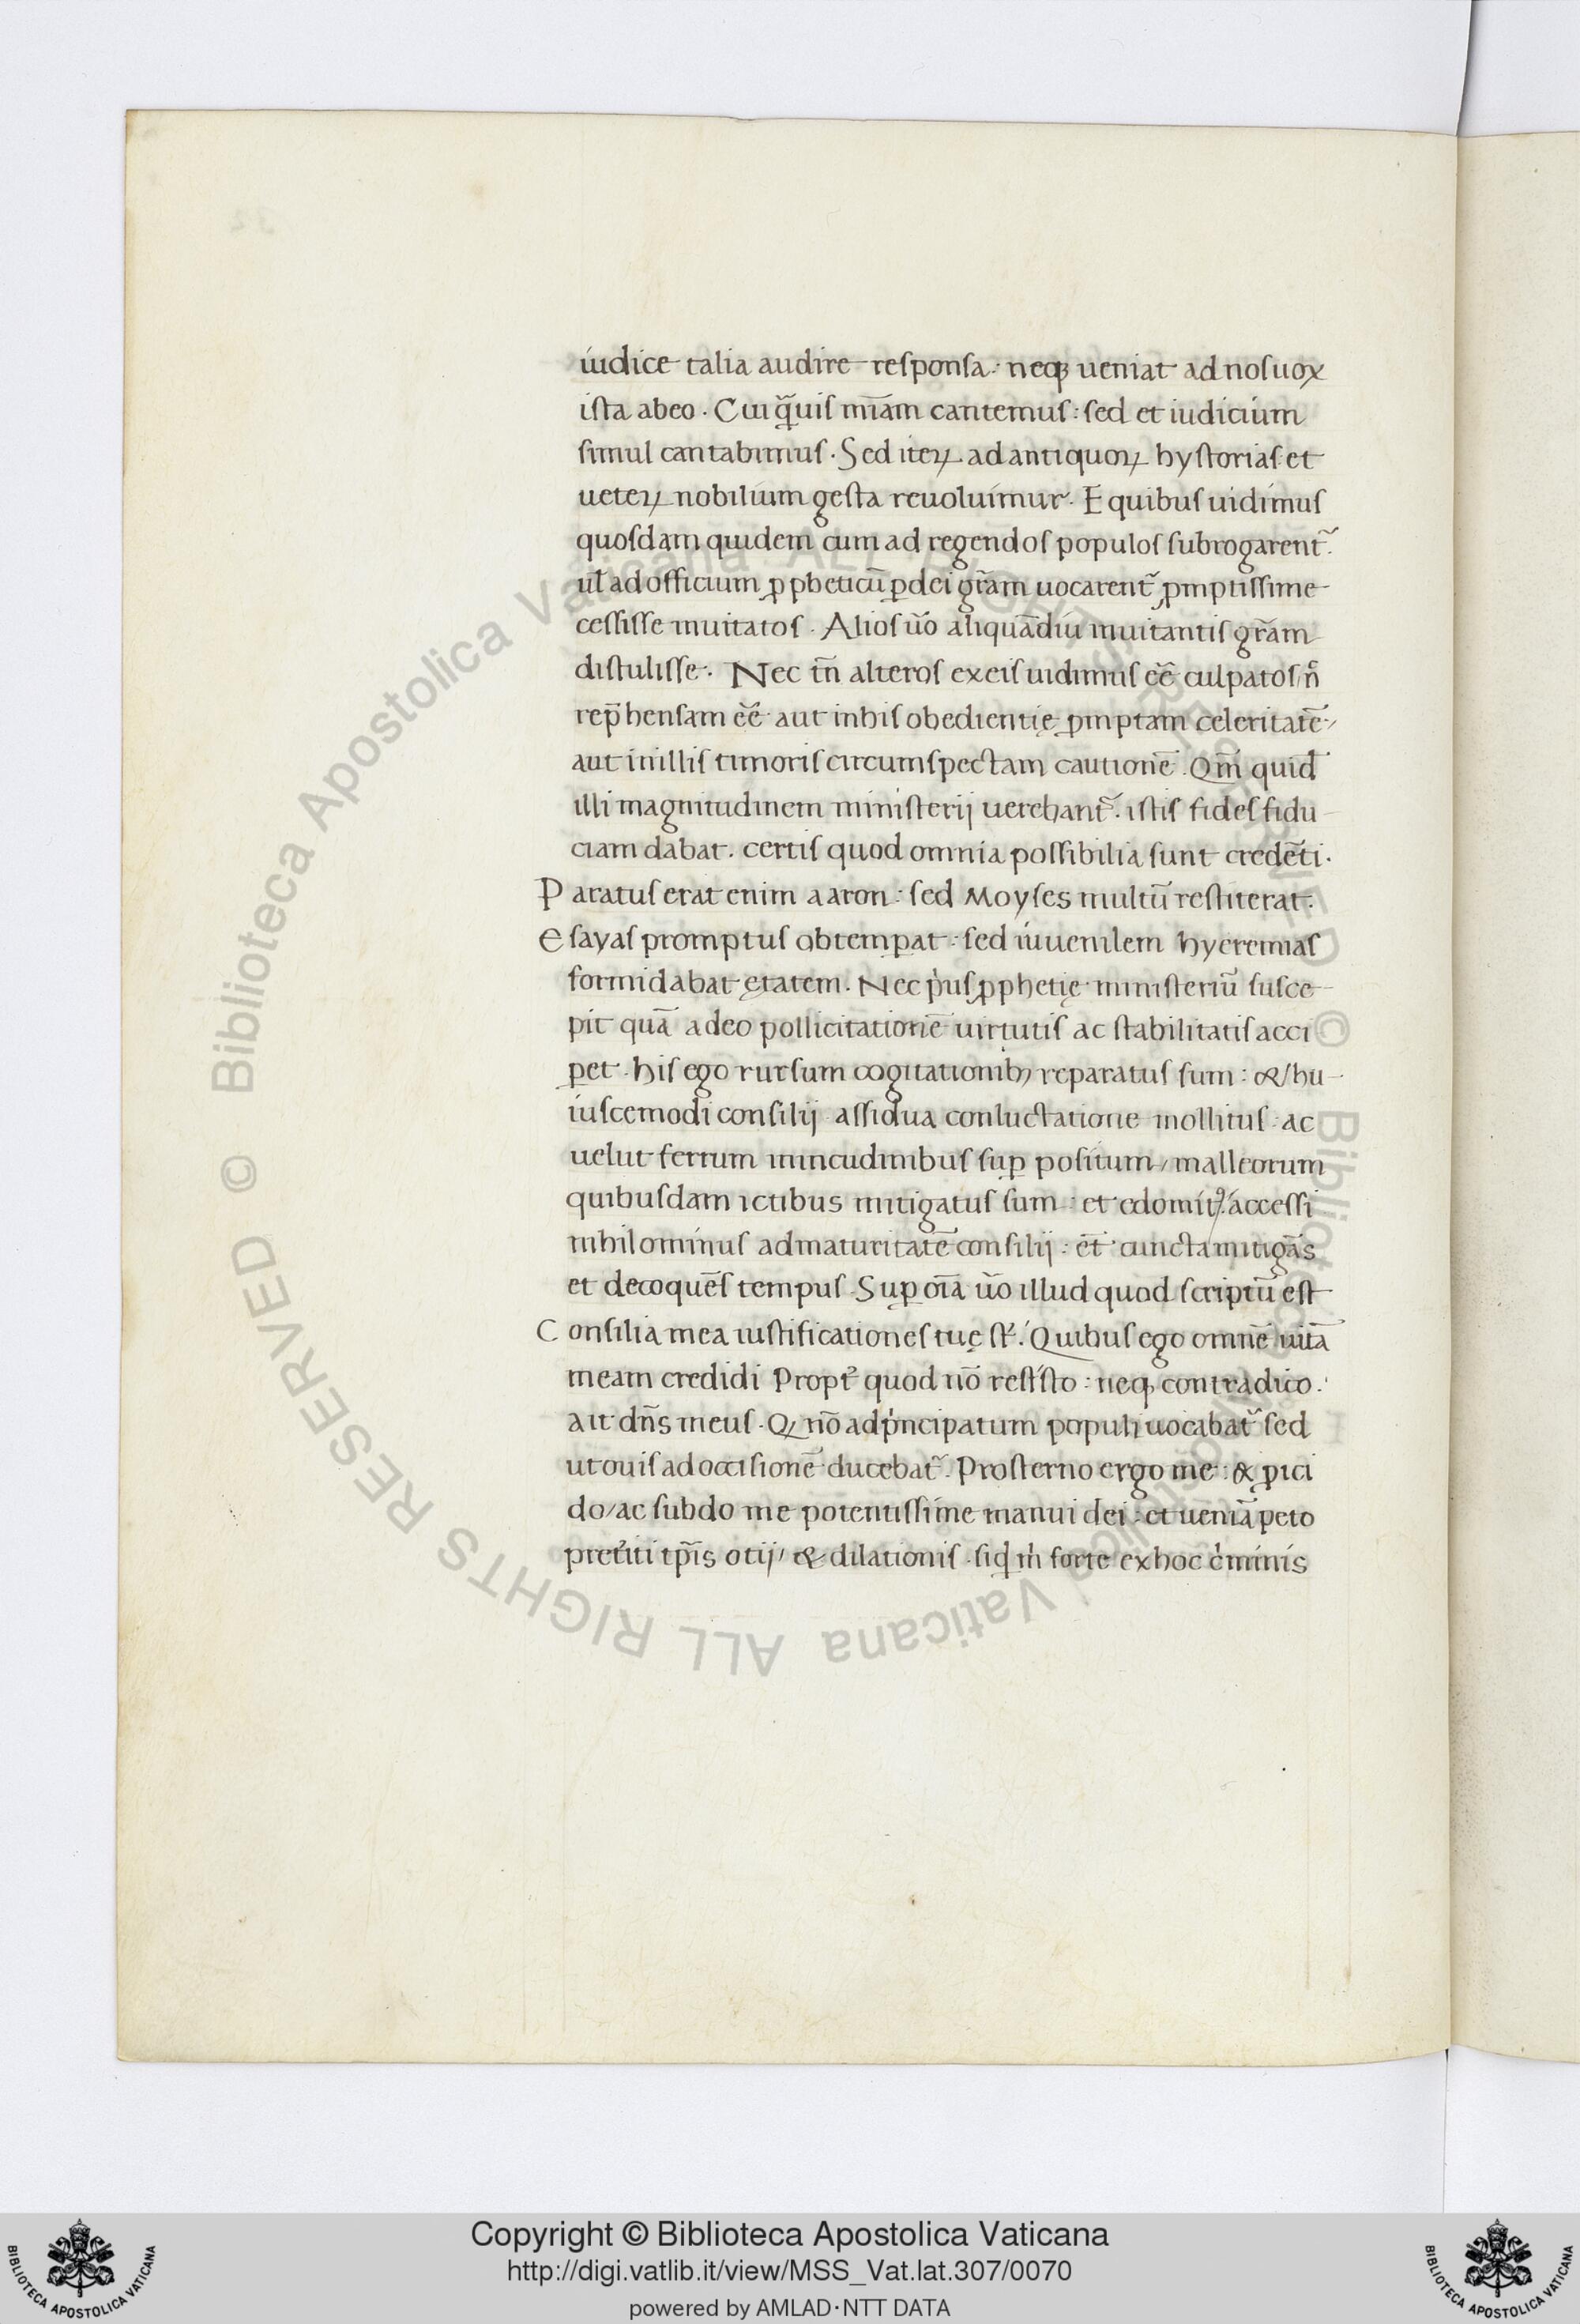 iudice talia audire responsa. neq; ueniat ad nos uox
ista a deo. Cui q̃uis mĩam cantemus: sed et iudicium
simul cantabimus. Sed iteꝝ ad antiquoꝝ hystorias et
ueteꝝ nobilium gesta reuoluimur. E quibus uidimus
quosdam quidem cum ad regendos populos subrogarent᷑.
ul̃ ad officium ꝓpheticũ ꝑ dei gr̃am uocarent᷑ ꝓmptissime
cessisse inuitatos. Alios ũo aliquãdiu inuitantis gr̃am
distulisse. Nec tñ alteros ex eis uidimus eẽ culpatos, ñ
rep̃hensam eẽ aut in his obedientię ꝓmptam celeritatẽ,
aut in illis timoris circumspectam cautionẽ. Qm̃ quid̃
illi magnitudinem ministerij uerebant᷑. istis fides fidu
ciam dabat. certis quod omnia possibilia sunt credẽti.
Paratus erat enim aaron: sed Moyses multũ restiterat.
esayas promptus obtemꝑat: sed iuuenilem hyeremias
formidabat ętatem. Nec p'us ꝓphetię ministeriũ susce
pit quã a deo pollicitationẽ uirtutis ac stabilitatis acci
ꝑet. his ego rursum cogitationib; reparatus sum: & hu
iuscemodi consilij assidua conluctatione mollitus. ac
uelut ferrum in incudinibus suꝑ positum, malleorum
quibusdam ictibus mitigatus sum: et edomitꝰ. accessi
nihilominus ad maturitatẽ consilij: et̃ cuncta mitigãs
et decoquẽs tempus. Suꝑ oĩa ũo illud quod scriptũ est
Consilia mea iustificationes tuę st̃. Quibus ego omnẽ uitã
meam credidi Propt᷑ quod nõ resisto: neq; contradico.
ait dñs meus. Qꝝ nõ ad p'ncipatum populi uocabat᷑ sed
ut ouis ad occisionẽ ducebat᷑. Prosterno ergo me: & ꝓici
do, ac subdo me potentissime manui dei: et ueniã peto
pret᷑iti tp̃is otij, & dilationis. siq̃ m' forte ex hoc c'minis
Copyright © Biblioteca Apostolica Vaticana
http://digi.vatlib.it/view/MSS_Vat.lat.307/0070
powered by AMLAD·NTT DATA
BIBLIOTECA APOSTOLICA VATICANA
BIBLIOTECA APOSTOLICA VATICANA
© Biblioteca Apostolica Vaticana ALL RIGHTS RESERVED © Biblioteca Apostolica Vaticana ALL RIGHTS RESERVED